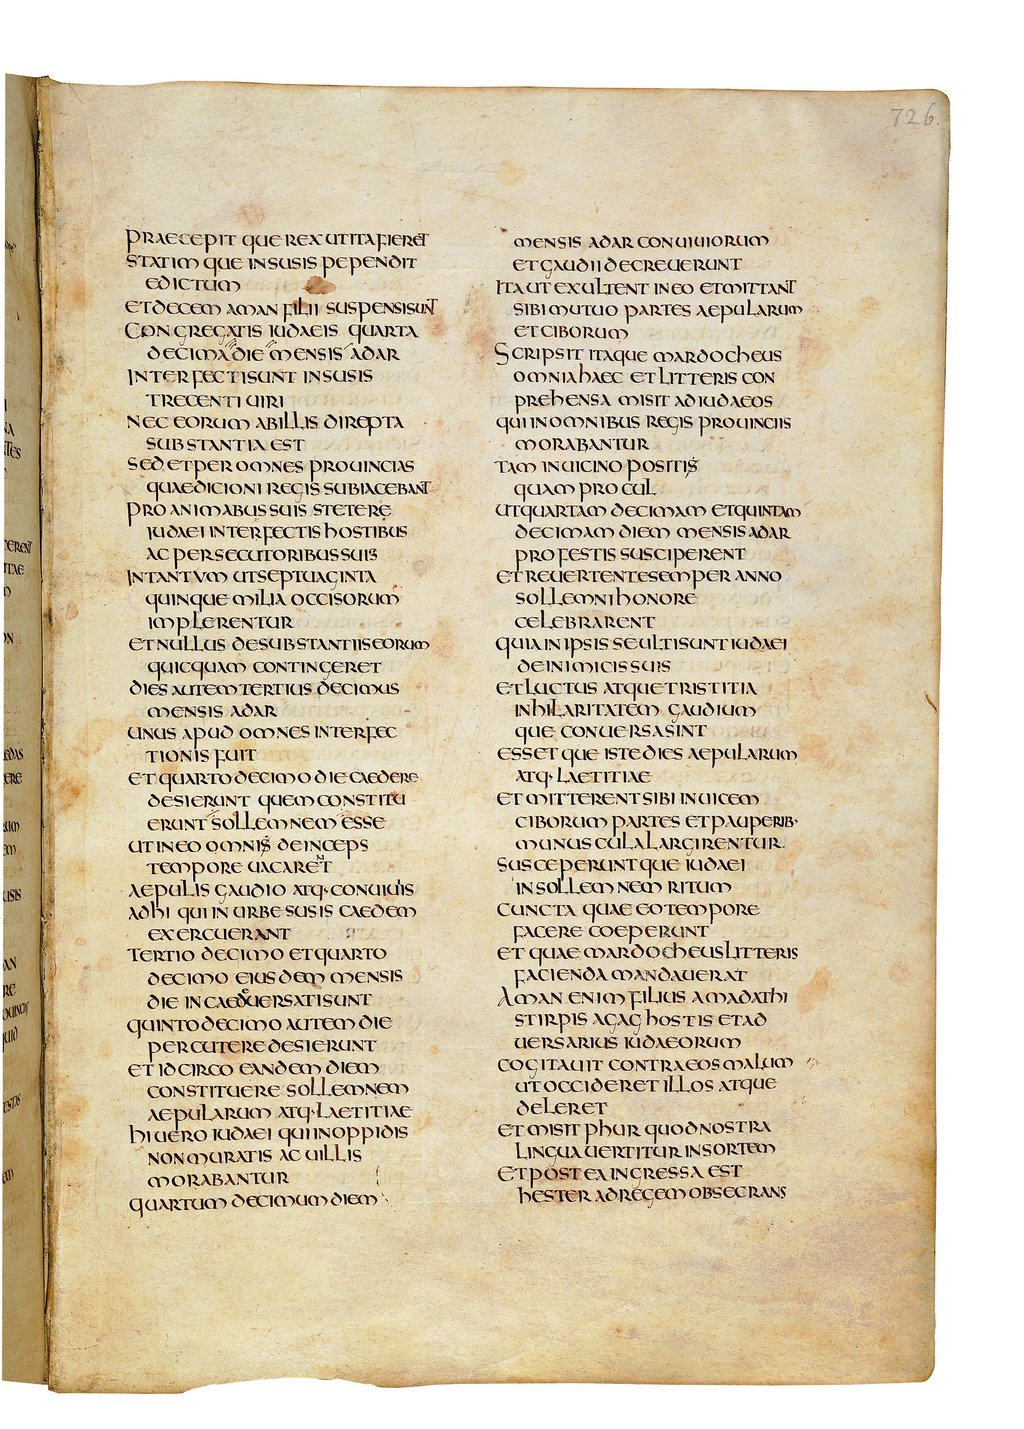 726.
PRAECEPIT QUE REX UT ITA FIERET
STATIM QUE IN SUSIS PEPENDIT
EDICTUM
ET DECEM AMAN FILII SUSPENSI SUNT
CONGREGATIS IUDAEIS QUARTA
DECIMA DIE MENSIS ADAR
INTERFECTI SUNT IN SUSIS
TRECENTI UIRI
NEC EORUM AB ILLIS DIREPTA
SUBSTANTIA EST
SED ET PER OMNES PROUINCIAS
QUAE DICIONI REGIS SUBIACEBANT
PRO ANIMABUS SUIS STETERE
IUDAEI INTERFECTIS HOSTIBUS
AC PERSECUTORIBUS SUIS
IN TANTVM UT SEPTUAGINTA
QUINQUE MILIA OCCISORUM
IMPLERENTUR
ET NULLUS DE SUBSTANTIIS EORUM
QUICQUAM CONTINGERET
DIES AUTEM TERTIUS DECIMUS
MENSIS ADAR
UNUS APUD OMNES INTERFEC
TIONIS FUIT
ET QUARTO DECIMO DIE CAEDERE
DESIERUNT QUEM CONSTITU
ERUNT SOLLEMNEM ESSE
UT IN EO OMNIS DEINCEPS
TEMPORE UACARENT
AEPULIS GAUDIO ATQ· CONUIUIIS
AD HI QUI IN URBE SUSIS CAEDEM
EXERCUERANT
TERTIO DECIMO ET QUARTO
DECIMO EIUSDEM MENSIS
DIE IN CAEDE UERSATI SUNT
QUINTO DECIMO AUTEM DIE
PERCUTERE DESIERUNT
ET IDCIRCO EANDEM DIEM
CONSTITUERE SOLLEMNEM
AEPULARUM ATQ· LAETITIAE
HI UERO IUDAEI QUI IN OPPIDIS
NON MURATIS AC UILLIS
MORABANTUR
QUARTUM DECIMUM DIEM
MENSIS ADAR CONUIUIORUM
ET GAUDII DECREUERUNT
ITA UT EXULTENT IN EO ET MITTANT
SIBI MUTUO PARTES AEPULARUM
ET CIBORUM
SCRIPSIT ITAQUE MARDOCHEUS
OMNIA HAEC ET LITTERIS CON
PREHENSA MISIT AD IUDAEOS
QUI IN OMNIBUS REGIS PROUINCIIS
MORABANTUR
TAM IN UICINO POSITIS
QUAM PROCUL
UT QUARTAM DECIMAM ET QUINTAM
DECIMAM DIEM MENSIS ADAR
PRO FESTIS SUSCIPERENT
ET REUERTENTE SEMPER ANNO
SOLLEMNI HONORE
CELEBRARENT
QUIA IN IPSIS SE ULTI SUNT IUDAEI
DE INIMICIS SUIS
ET LUCTUS ATQUE TRISTITIA
IN HILARITATEM GAUDIUM
QUE CONUERSA SINT
ESSET QUE ISTE DIES AEPULARUM
ATQ· LAETITIAE
ET MITTERENT SIBI INUICEM
CIBORUM PARTES ET PAUPERIB·
MUNUSCULA LARGIRENTUR.
SUSCEPERUNT QUE IUDAEI
IN SOLLEMNEM RITUM
CUNCTA QUAE EO TEMPORE
FACERE COEPERUNT
ET QUAE MARDOCHEUS LITTERIS
FACIENDA MANDAUERAT
AMAN ENIM FILIUS AMADATHI
STIRPIS AGAG HOSTIS ET AD
UERSARIUS IUDAEORUM
COGITAUIT CONTRA EOS MALUM
UT OCCIDERET ILLOS ATQUE
DELERET
ET MISIT PHUR QUOD NOSTRA
LINGUA UERTITUR IN SORTEM
ET POSTEA INGRESSA EST
HESTER AD REGEM OBSECRANS